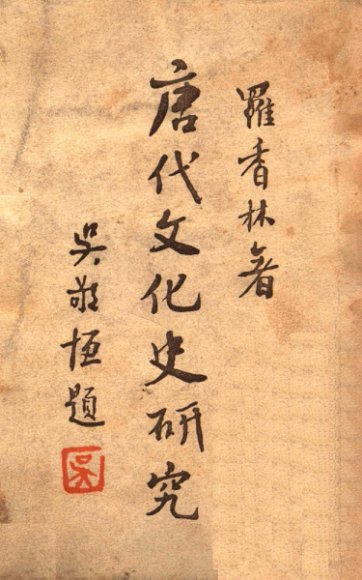 羅香林著
唐代文化史研究
吳敬恒題
吳